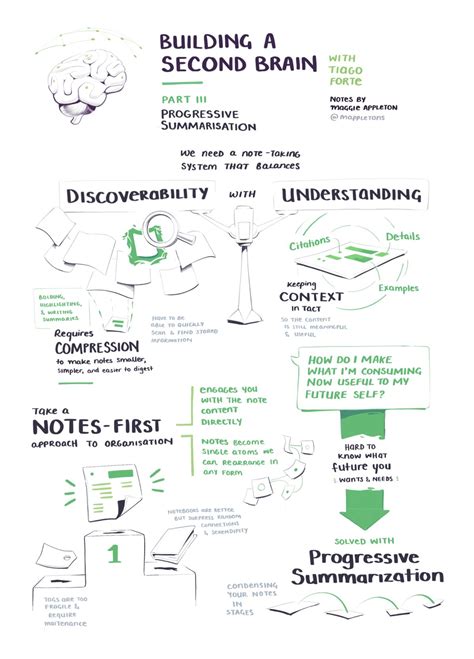 BUILDING A
SECOND BRAIN
WITH
TIAGO
FORTE
PART III
PROGRESSIVE
SUMMARISATION
NOTES BY
MAGGIE APPLETON
@mappletons
WE NEED A NOTE-TAKING
SYSTEM THAT BALANCES
DISCOVERABILITY WITH UNDERSTANDING
Citations
Details
Examples
Keeping
CONTEXT
IN TACT
SO THE CONTENT
IS STILL MEANINGFUL
& USEFUL
BOLDING,
HIGHLIGHTING,
& WRITING
SUMMARIES
HAVE TO BE
ABLE TO QUICKLY
SCAN & FIND STORED
INFORMATION
Requires
COMPRESSION
to make notes smaller,
simpler, and easier to digest
HOW DO I MAKE
WHAT I'M CONSUMING
NOW USEFUL TO MY
FUTURE SELF?
TAKE A
NOTES-FIRST
APPROACH TO ORGANISATION
ENGAGES YOU
WITH THE NOTE
CONTENT
DIRECTLY
NOTES BECOME
SINGLE ATOMS WE
CAN REARRANGE IN
ANY FORM
HARD TO
KNOW WHAT
future you
WANTS & NEEDS
NOTEBOOKS ARE BETTER
BUT SUPRESS RANDOM
CONNECTIONS
& SERENDIPITY
1
TAGS ARE TOO
FRAGILE &
REQUIRE
MAITENANCE
SOLVED WITH
Progressive
Summarization
CONDENSING
YOUR NOTES
IN STAGES